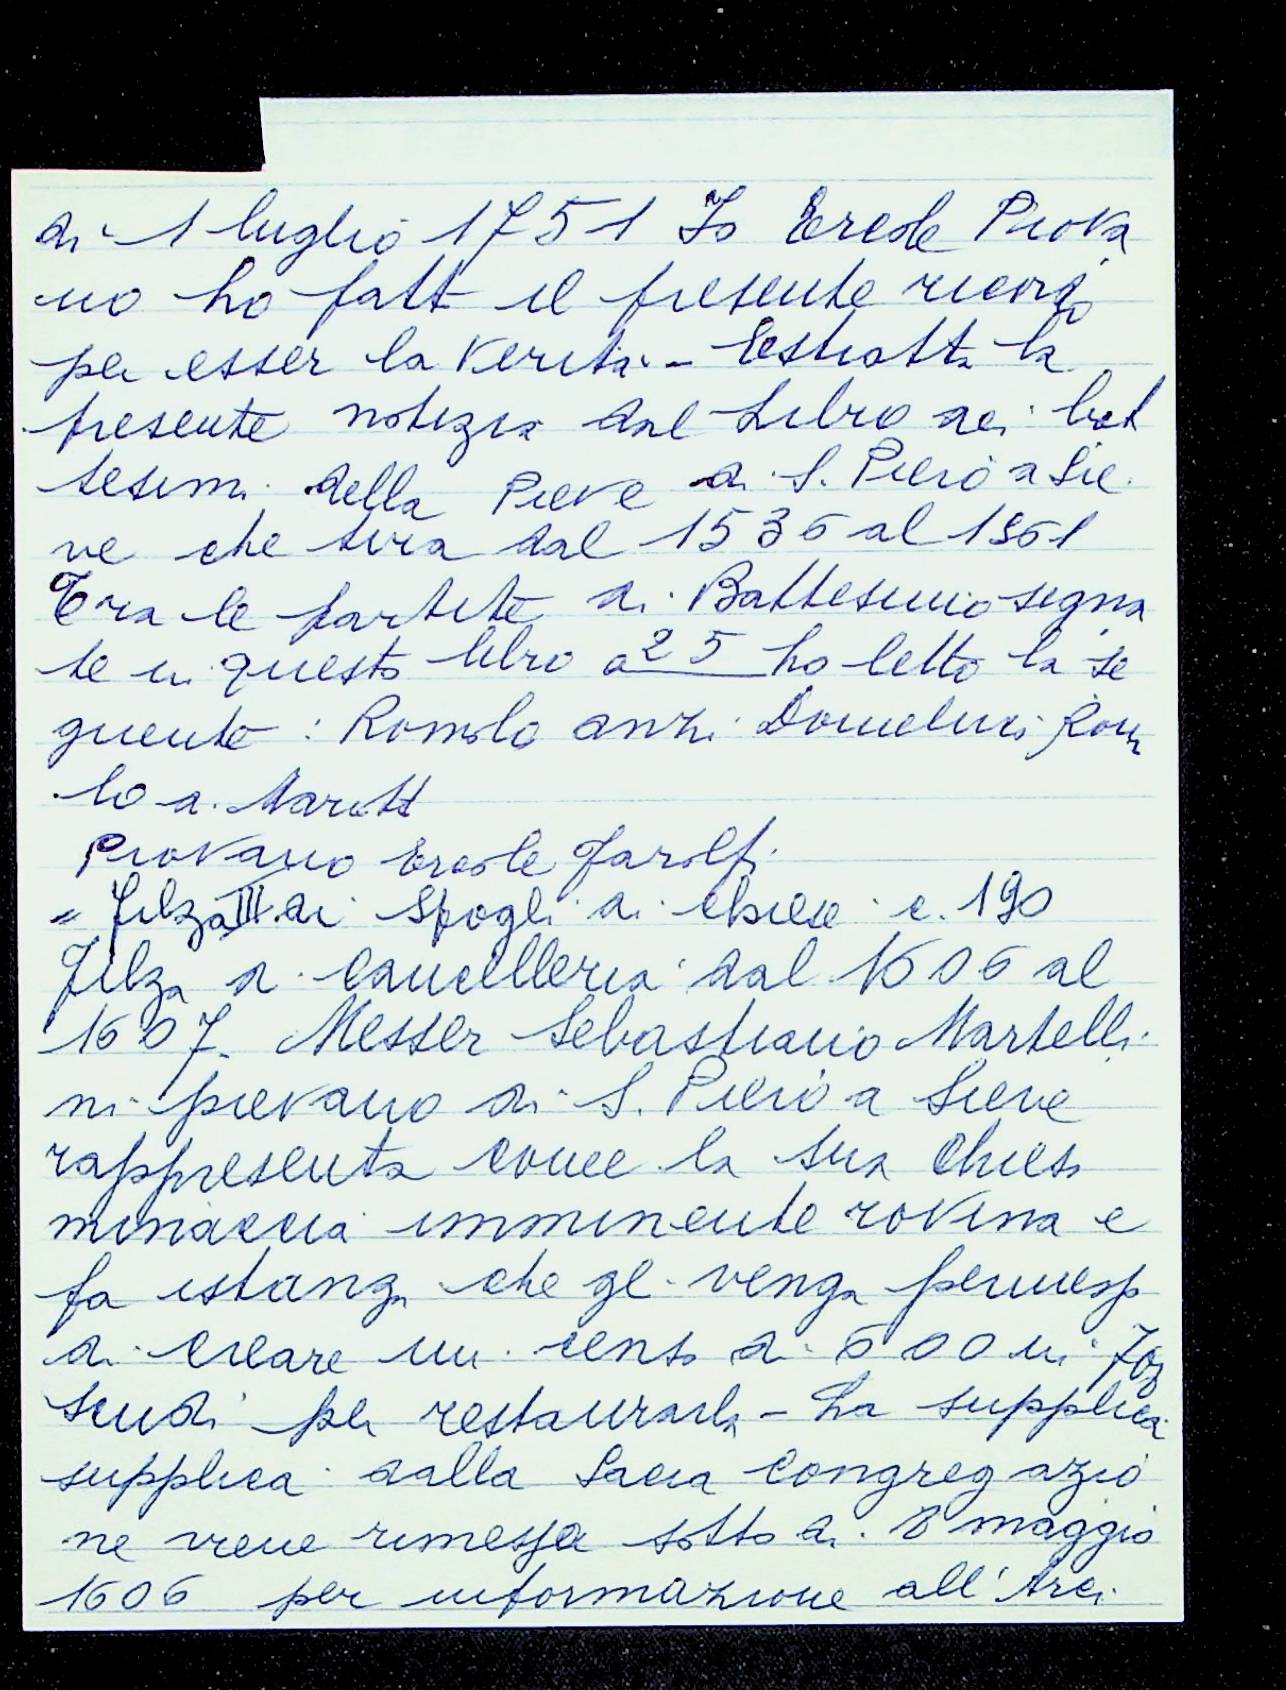 di 1 luglio 1751 Io Ercole Piova
no ho fatt il presente ricord
per esser la verità. - Estratta la
presente notizia dal Libro dei bat
tesimi della Pieve di S. Piero a Sie
ve che tira dal 1536 al 1561
Tra le partite di Battesimo segna
te in questo libro a 25 ho letto la se
guente : Romolo anzi Domeluci Rom
lo a. Mariott
Piovano Ercole Farolfi
= Filza III di Spogli di chiese c. 190
Filza di Cancelleria dal 1606 al
1607. Messer Sebastiano Martelli
ni pievano di S. Piero a Sieve
rappresenta come la sua Chiesa
minaccia imminente rovina e
fa istanza che gl venga permesso
di creare un censo di 600 in 700
scudi per restaurarla - La supplica
supplica dalla Sacra Congregazio
ne viene rimessa sotto di 8 maggio
1606 per informazione all'Arci